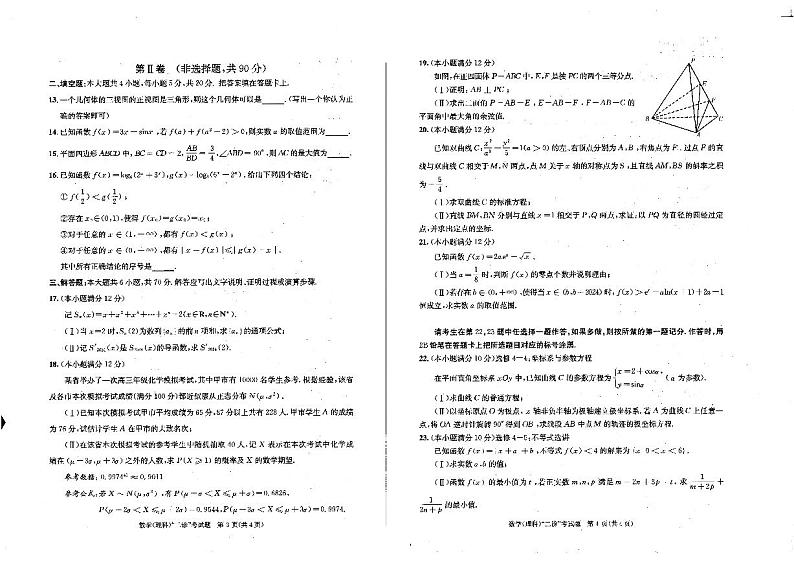 第Ⅱ卷 (非选择题,共90分)
二、填空题:本大题共4小题,每小题5分,共20分.把答案填在答题卡上.
13.一个几何体的三视图的正视图是三角形,则这个几何体可以是____.(写出一个你认为正
确的答案即可)
14.已知函数f(x)=3x-sinx,若f(a)+f(a²-2)>0,则实数a的取值范围为____.
15.平面四边形ABCD中,BC=CD=2,AB/BD=3/4,∠ABD=90°,则AC的最大值为____.
16.已知函数f(x)=log₄(2ˣ+3ˣ),g(x)=log₃(5ˣ-2ˣ),给出下列四个结论:
①f(1/2)<g(1/2);
②存在x₀∈(0,1),使得f(x₀)=g(x₀)=x₀;
③对于任意的x∈(1,+∞),都有f(x)<g(x);
④对于任意的x∈(0,+∞),都有|x-f(x)|≤|g(x)-x|.
其中所有正确结论的序号是____.
三、解答题:本大题共6小题,共70分.解答应写出文字说明、证明过程或演算步骤.
17.(本小题满分12分)
记Sₙ(x)=x+x²+x³+…+xⁿ-2(x∈R,n∈N*)
(Ⅰ)当x=2时,Sₙ(2)为数列{aₙ}的前n项和,求{aₙ}的通项公式;
(Ⅱ)记S′₂₀₂₄(x)是S₂₀₂₄(x)的导函数,求S′₂₀₂₄(2).
18.(本小题满分12分)
某省举办了一次高三年级化学模拟考试,其中甲市有10000名学生参考.根据经验,该省
及各市本次模拟考试成绩(满分100分)都近似服从正态分布N(μ,σ²).
(Ⅰ)已知本次模拟考试甲市平均成绩为65分,87分以上共有228人.甲市学生A的成绩
为76分,试估计学生A在甲市的大致名次;
(Ⅱ)在该省本次模拟考试的参考学生中随机抽取40人,记X表示在本次考试中化学成
绩在(μ-3σ,μ+3σ)之外的人数,求P(X≥1)的概率及X的数学期望.
参考数据:0.9974⁴⁰≈0.9011
参考公式:若X~N(μ,σ²),有P(μ-σ<X≤μ+σ)=0.6826,
P(μ-2σ<X≤μ+2σ)=0.9544,P(μ-3σ<X≤μ+3σ)=0.9974.
数学(理科)"二诊"考试题 第3页(共4页)
19.(本小题满分12分)
如图,在正四面体P-ABC中,E,F是棱PC的两个三等分点.
(Ⅰ)证明:AB⊥PC;
(Ⅱ)求出二面角P-AB-E,E-AB-F,F-AB-C的
平面角中最大角的余弦值.
P
E
F
B
C
A
20.(本小题满分12分)
已知双曲线C:x²/a²-y²/5=1(a>0)的左、右顶点分别为A,B,右焦点为F.过点F的直
线与双曲线C相交于M,N两点,点M关于x轴的对称点为S,且直线AM,BS的斜率之积
为-5/4.
(Ⅰ)求双曲线C的标准方程;
(Ⅱ)直线BM,BN分别与直线x=1相交于P,Q两点,求证:以PQ为直径的圆经过定
点,并求出定点的坐标.
21.(本小题满分12分)
已知函数f(x)=2axeˣ-√x.
(Ⅰ)当a=1/8时,判断f(x)的零点个数并说明理由;
(Ⅱ)若存在b∈(0,+∞),使得当x∈(b,b+2024)时,f(x)>eˣ-aln(x+1)+2a-1
恒成立,求实数a的取值范围.
请考生在第22,23题中任选择一题作答,如果多做,则按所做的第一题记分.作答时,用
2B铅笔在答题卡上把所选题目对应的标号涂黑.
22.(本小题满分10分)选修4-4:坐标系与参数方程
在平面直角坐标系xOy中,已知曲线C的参数方程为{x=2+cosα, y=sinα (α为参数).
(Ⅰ)求曲线C的普通方程;
(Ⅱ)以坐标原点O为极点,x轴非负半轴为极轴建立极坐标系.若A为曲线C上任意一
点,将OA逆时针旋转90°得到OB,求线段AB中点M的轨迹的极坐标方程.
23.(本小题满分10分)选修4-5:不等式选讲
(Ⅰ)求实数a,b的值;
(Ⅱ)函数f(x)的最小值为t,若正实数m,n,p满足m-2n+5p=t,求1/(m+2p)+
1/(2n+p)的最小值.
数学(理科)"二诊"考试题 第4页(共4页)